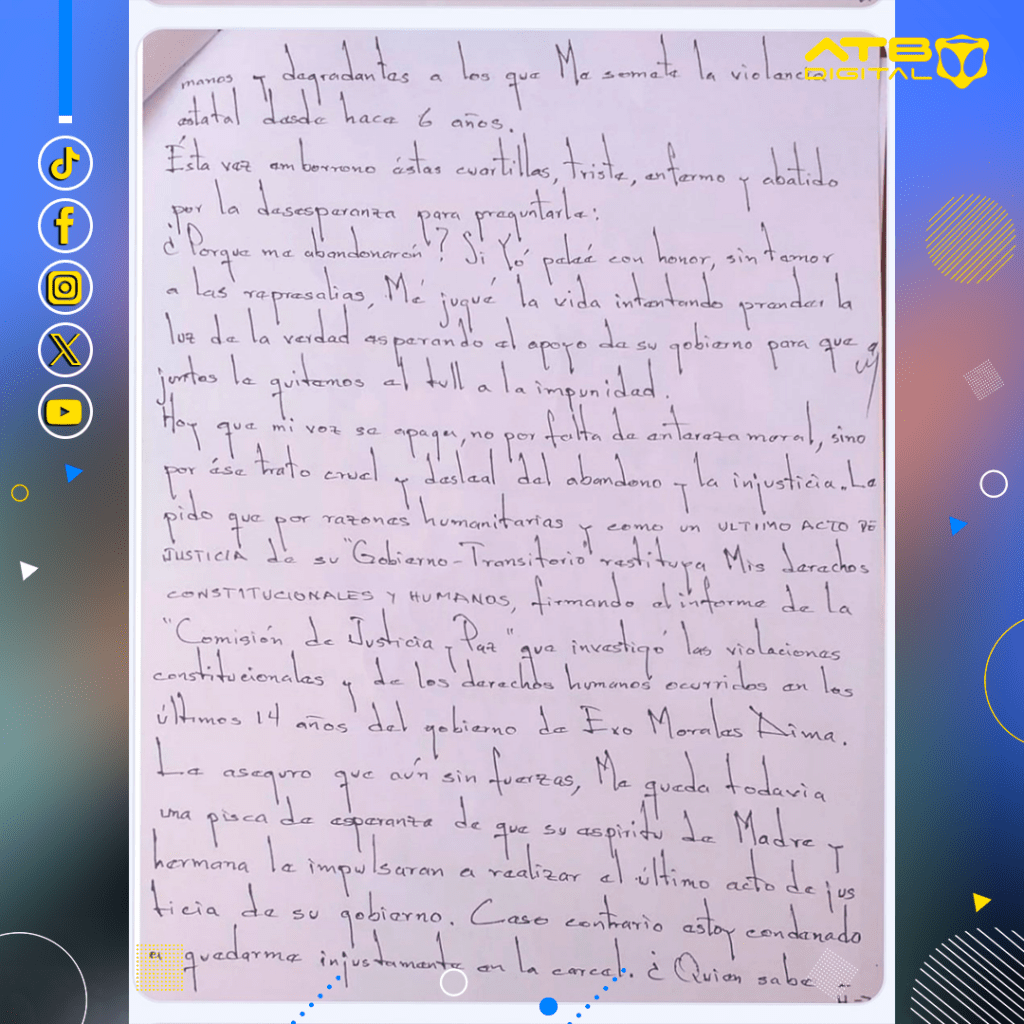 ATB
DIGITAL
manos y degradantes a los que Me somete la violencia
estatal desde hace 6 años.
Ésta vez emborrono éstas cuartillas, triste, enfermo y abatido
por la desesperanza para preguntarle:
¿Porque me abandonarón? Si Yó peleé con honor, sin temor
a las represalias, Mé jugué la vida intentando prender la
luz de la verdad esperando el apoyo de su gobierno para que
juntos le quitemos el tull a la impunidad.
Hoy que mi voz se apaga, no por falta de entereza moral, sino
por ése trato cruel y desleal del abandono y la injusticia. Le
pido que por razones humanitarias y como un ULTIMO ACTO DE
JUSTICIA de su "Gobierno-Transitorio" restituya Mis derechos
CONSTITUCIONALES Y HUMANOS, firmando el informe de la
"Comisión de Justicia y Paz" que investigó las violaciones
constitucionales y de los derechos humanos ocurridos en los
últimos 14 años del gobierno de Evo Morales Aima.
Le aseguro que aún sin fuerzas, Me queda todavia
una pisca de esperanza de que su espiritu de Madre y
hermana le impulsaran a realizar el último acto de jus
ticia de su gobierno. Caso contrario estoy condenado
a quedarme injustamente en la carcel. ¿Quien sabe